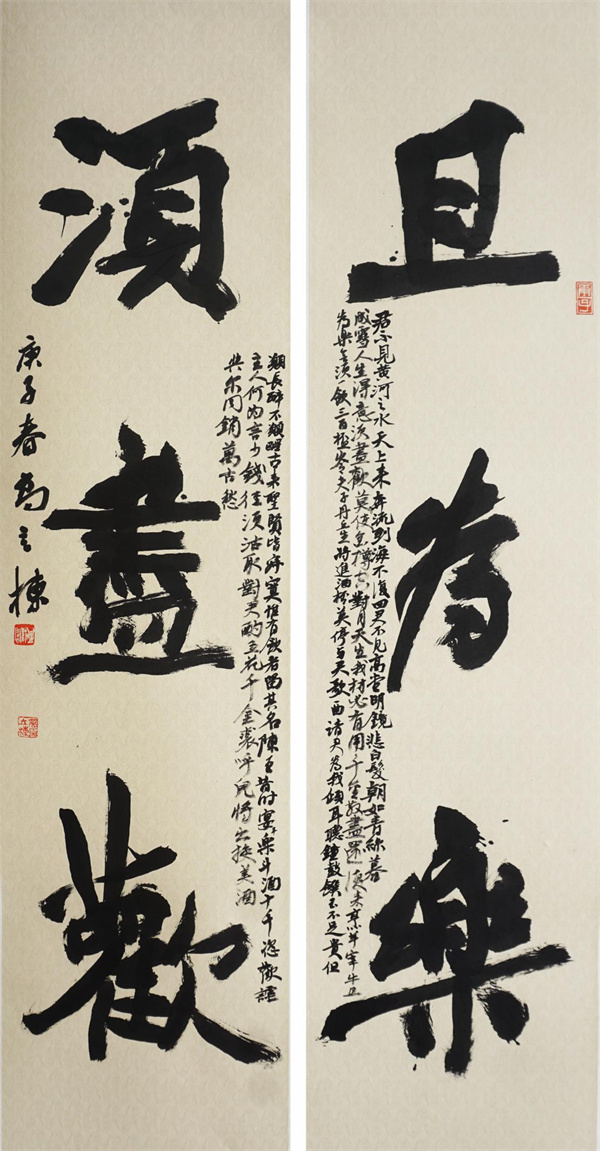 且為樂
君不見黃河之水天上来奔流到海不復回君不見高堂明鏡悲白髮朝如青絲暮
成雪人生得意須盡歡莫使金樽空對月天生我材必有用千金散盡還復来烹羊宰牛且
為樂會須一飲三百杯岑夫子丹丘生將進酒杯莫停与君歌曲請君為我傾耳聽鐘鼓饌玉不足貴但
須盡歡
願長醉不願醒古来聖賢皆寂寞惟有飲者留其名陳王昔時宴平樂斗酒十千恣歡謔
主人何為言少錢徑須沽取對君酌五花千金裘呼兒將出換美酒
與尔同銷萬古愁
庚子春馬之棟